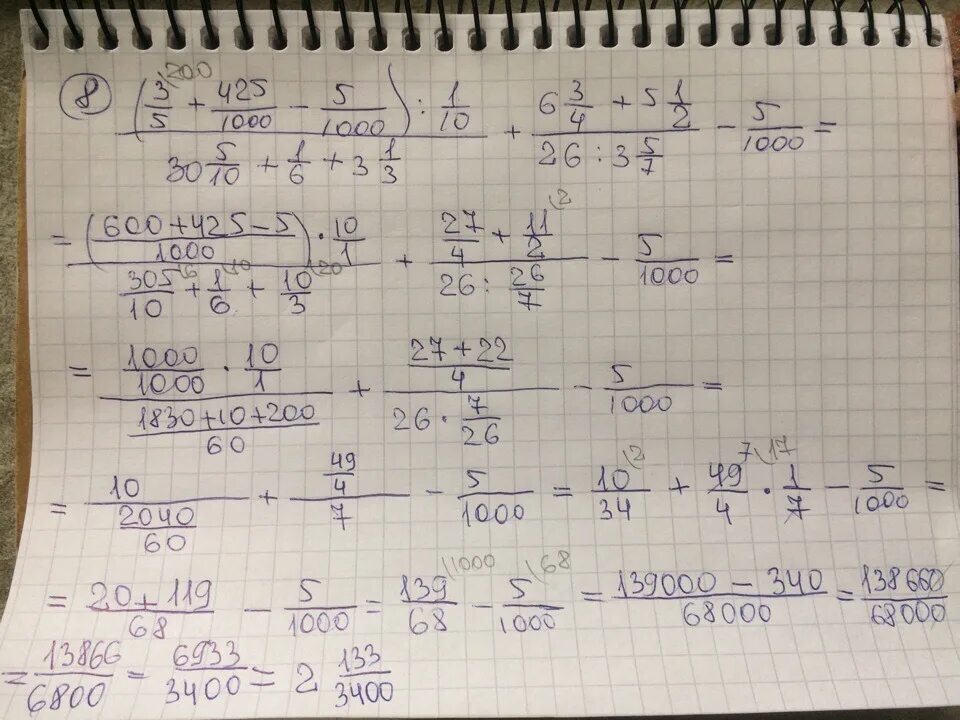 8 (3/5 \200 + 425/1000 - 5/1000) : 1/10 / (30 5/10 + 1/6 + 3 1/3) + (6 3/4 + 5 1/2) / (26 : 3 5/7) - 5/1000 =
= ((600 + 425 - 5)/1000) · 10/1 / (305/10 \6 + 1/6 \10 + 10/3 \20) + (27/4 + 11/2 \2) / (26 : 26/7) - 5/1000 =
= (1000/1000 · 10/1) / ((1830 + 10 + 200)/60) + ((27 + 22)/4) / (26 · 7/26) - 5/1000 =
= 10 / (2040/60) + (49/4) / 7 - 5/1000 = 10/34 \2 + 49/4 7 \17 · 1/7 - 5/1000 =
= (20 + 119)/68 - 5/1000 = 139/68 \1000 - 5/1000 \68 = (139000 - 340)/68000 = 138660/68000
= 13866/6800 = 6933/3400 = 2 133/3400